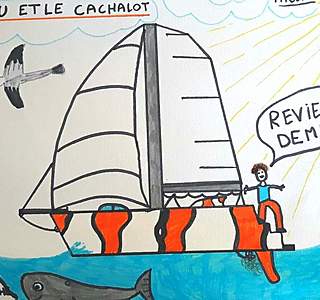 U ET LE CACHALOT
REVIE
DEM